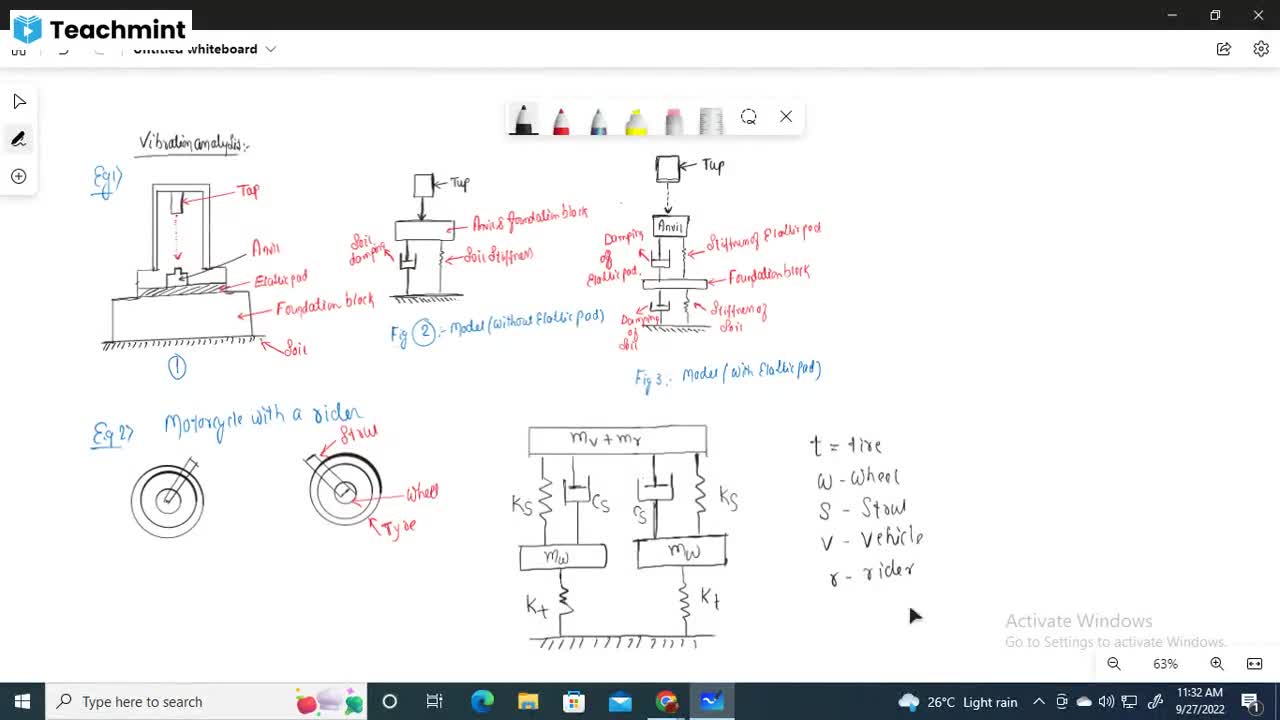 Teachmint
Untitled whiteboard
Vibration analysis:-
Eg 1>
Tap
Anvil
Elastic pad
Foundation block
Soil
1
Tup
Anvil & foundation block
Soil damping
Soil Stiffness
Fig 2 :- Model (without Elastic pad)
Tup
Anvil
Damping of Elastic pad.
Stiffness of Elastic pad
Foundation block
Damping of Soil
Stiffness of Soil
Fig 3 :- Model (with Elastic pad)
Eg 2> Motorcycle with a rider
Strut
Wheel
Tyre
mv + mr
Ks Cs Cs Ks
mw mw
Kt Kt
t = tire
w - wheel
s - Strut
v - Vehicle
r - rider
Activate Windows
Go to Settings to activate Windows.
63%
Type here to search
26°C Light rain
11:32 AM
9/27/2022
1